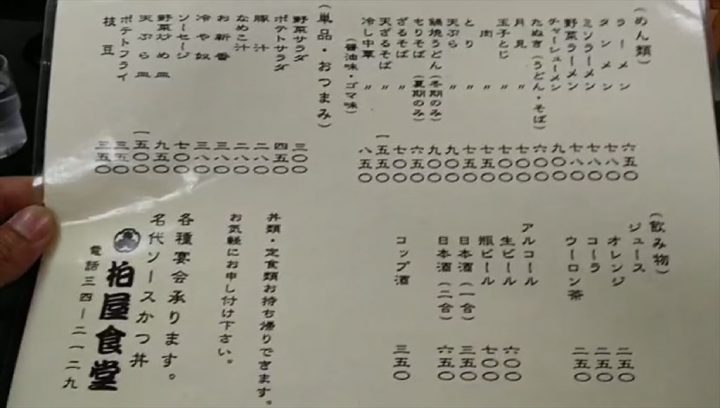 (めん類)
ラーメン 六五〇
タンメン
ミソラーメン
野菜ラーメン
チャーシューメン 九〇〇
たぬき(うどん・そば) 六〇〇
月見 〃
玉子とじ 〃
肉 〃
とり 〃
天ぷら 〃
鍋焼うどん(冬期のみ)
もりそば(夏期のみ)
ざるそば 七〇〇
天ざるそば
冷し中華 〃 八五〇
(醤油味・ゴマ味)
(単品・おつまみ)
野菜サラダ 三〇〇
ポテトサラダ 四五〇
豚汁 二八〇
なめこ汁 二八〇
お新香 三八〇
冷や奴 三八〇
ソーセージ 七〇〇
野菜炒め皿 九五〇
天ぷら皿
ポテトフライ 三五〇
枝豆 三五〇
(飲み物)
ジュース
オレンジ 二五〇
コーラ 二五〇
ウーロン茶 二五〇
アルコール
生ビール 六〇〇
瓶ビール 七〇〇
日本酒(一合) 三五〇
日本酒(二合) 六五〇
コップ酒 三五〇
丼類・定食類お持ち帰りできます。
お気軽にお申し付け下さい。
各種宴会承ります。
名代ソースかつ丼
柏屋食堂
電話三四ー二一二九